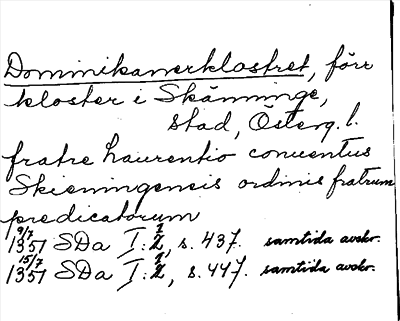 Dominikanerklostret, förr
kloster i Skänninge,
stad, Österg. l.
fratre Laurentio conuentus
Skeningensis ordinis fratrum
predicatorum
9/7 1351 SDa I:1/2, s. 437. samtida avskr.
15/7 1351 SDa I:1/2, s. 447. samtida avskr.